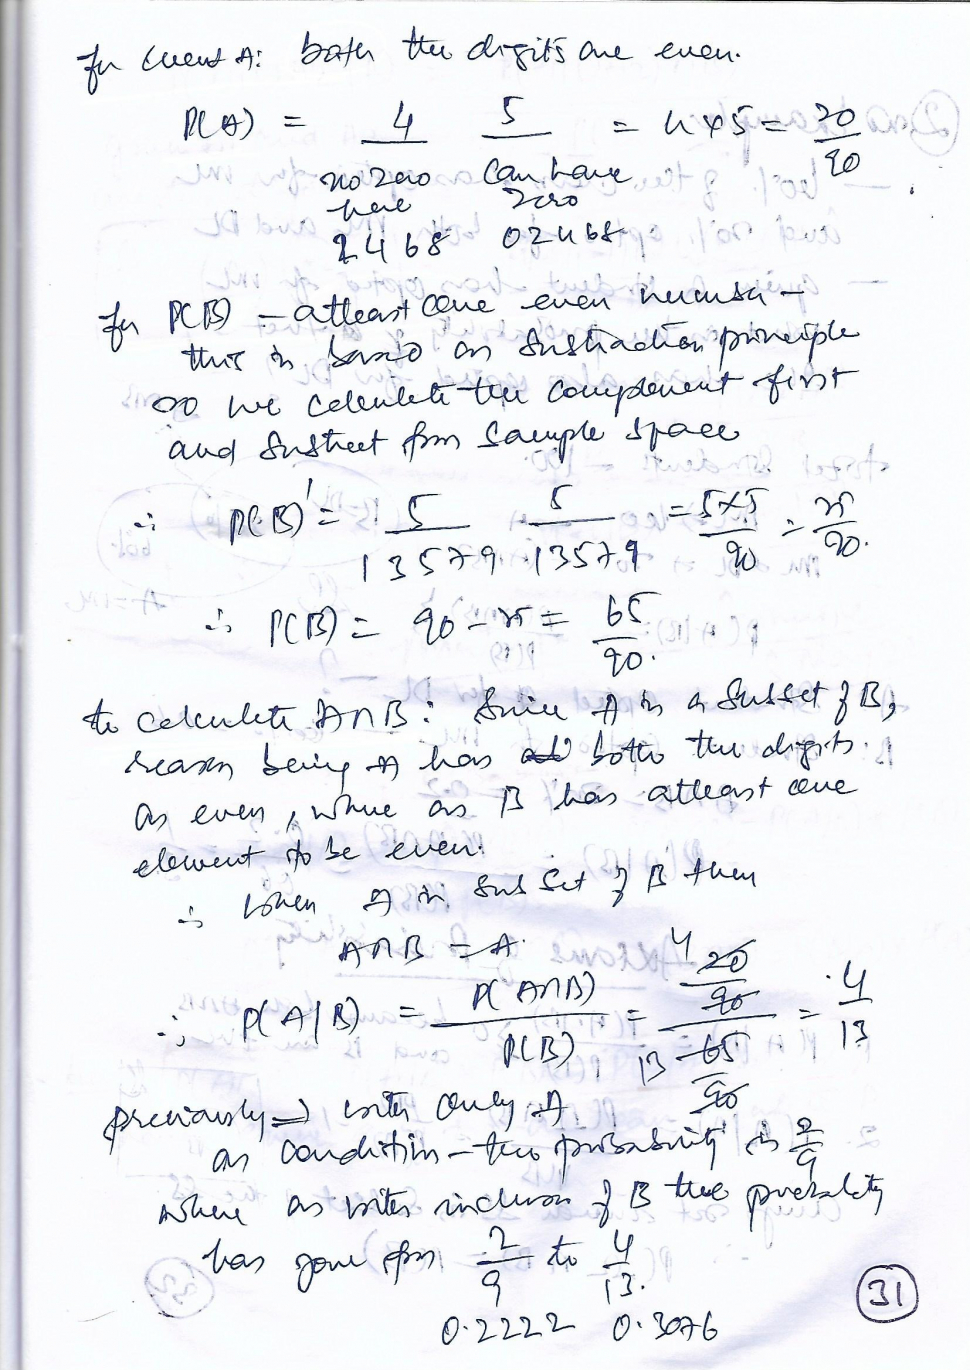 for event A: both the digits are even.
P(A) = 4 5 = 4x5 = 20/90
no zero can have
here zero
2468 02468
for P(B) - atleast one even number -
this is based on Substraction principle
so we calculate the complement first
and Substract from Sample Space
∴ P(B)' = 5 5 = 5x5/90 = 25/90.
13579. 13579
∴ P(B) = 90 - 25 = 65/90.
to calculate A∩B: Since A is a Subset of B,
reason being A has both the digits
as even, where as B has atleast one
element to be even.
∴ when A is Subset of B then
A∩B = A.
∴ P(A|B) = P(A∩B)/P(B) = 4 20/90 / 13 65/90 = 4/13
previously ⇒ with only A
as condition - the probability is 2/9
where as with inclusion of B the probability
has gone from 2/9 to 4/13.
0.2222 0.3076
31